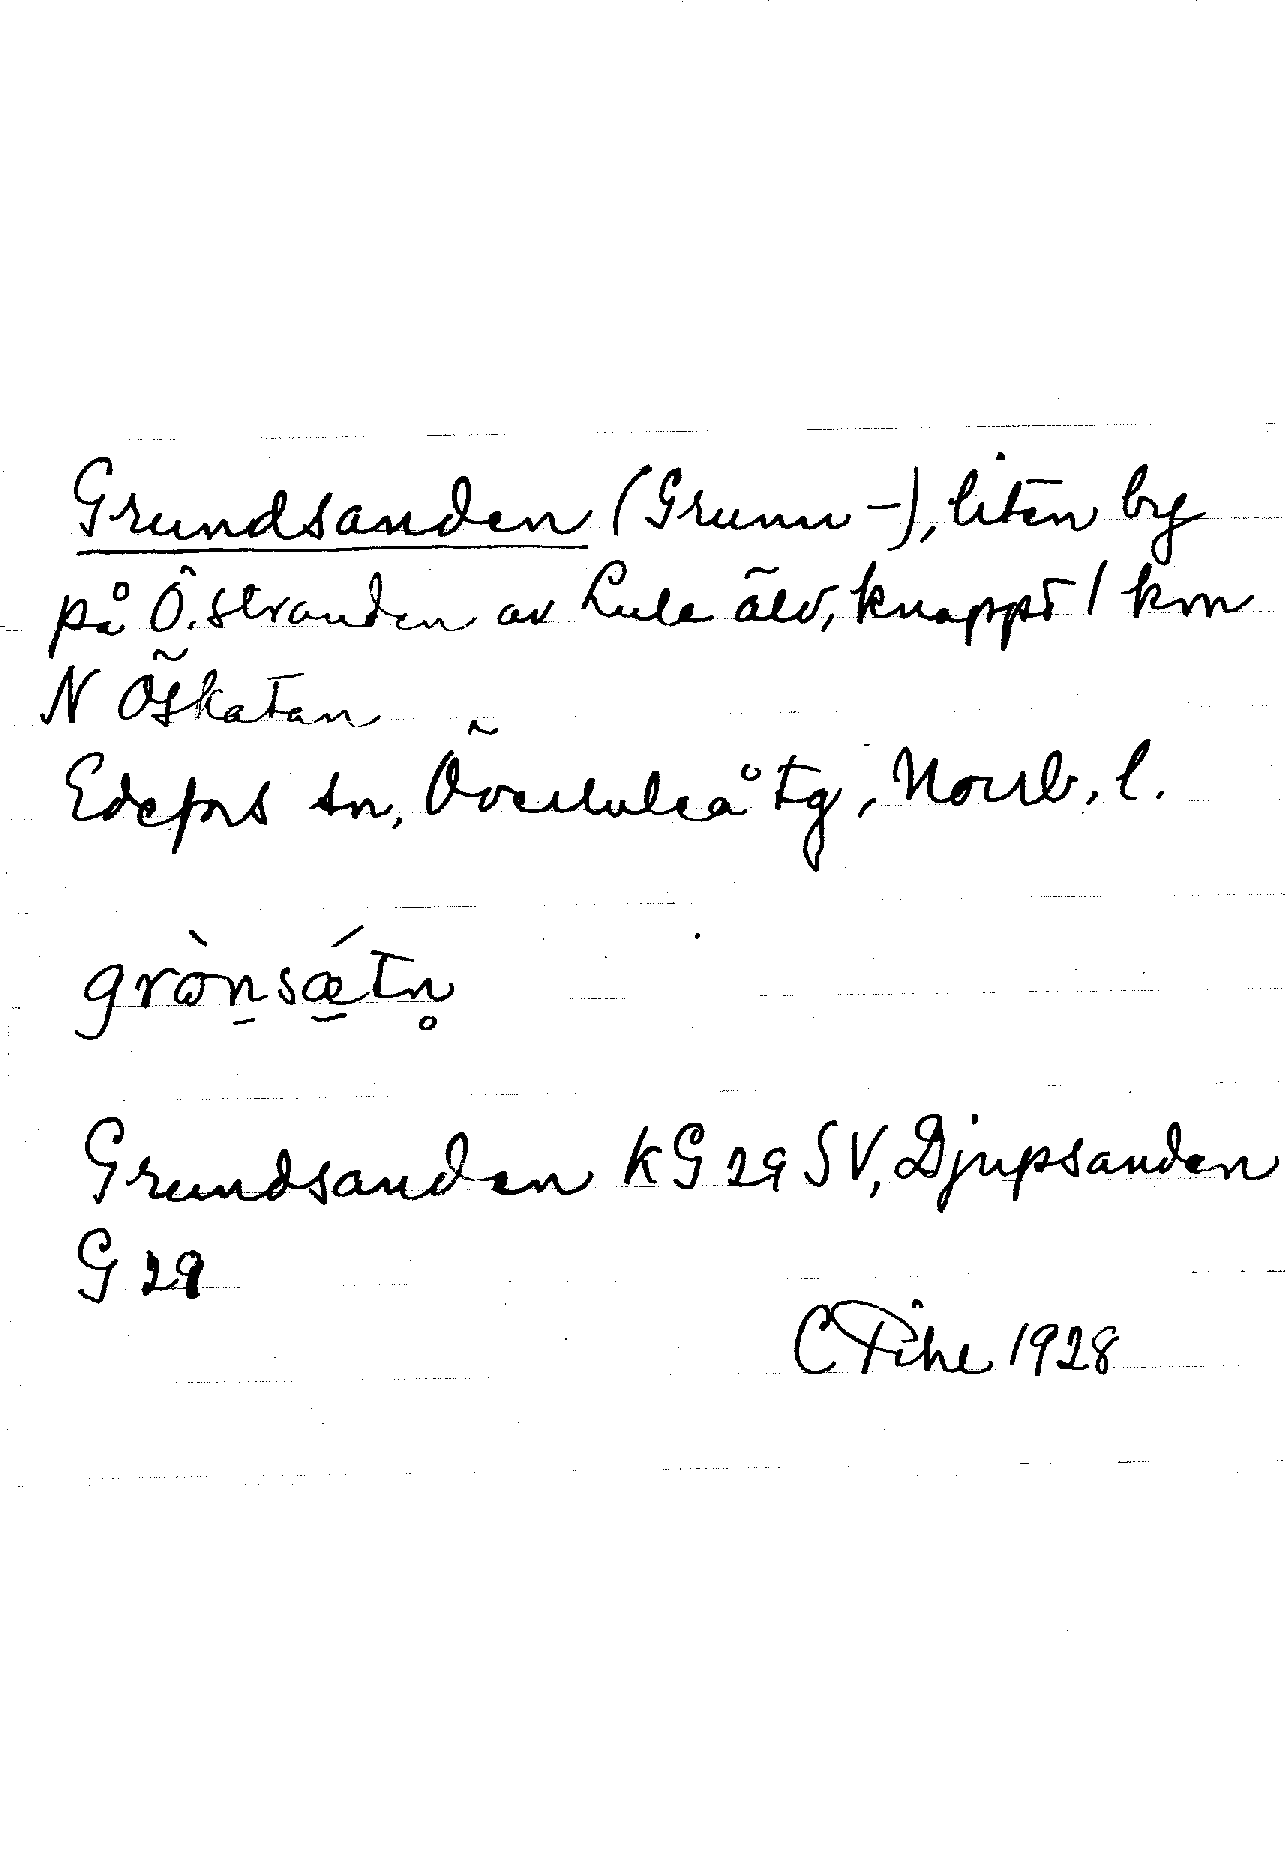 Grundsanden (Grunn-), liten by
på Ö. stranden av Lule älv, knappt 1 km
N Öskatan
Edefors sn, Överluleå tg, Norrb. l.
grὼn̠sǽ̠tn̥
Grundsanden KG 29 SV, Djupsanden
G 29
C Pihl 1928